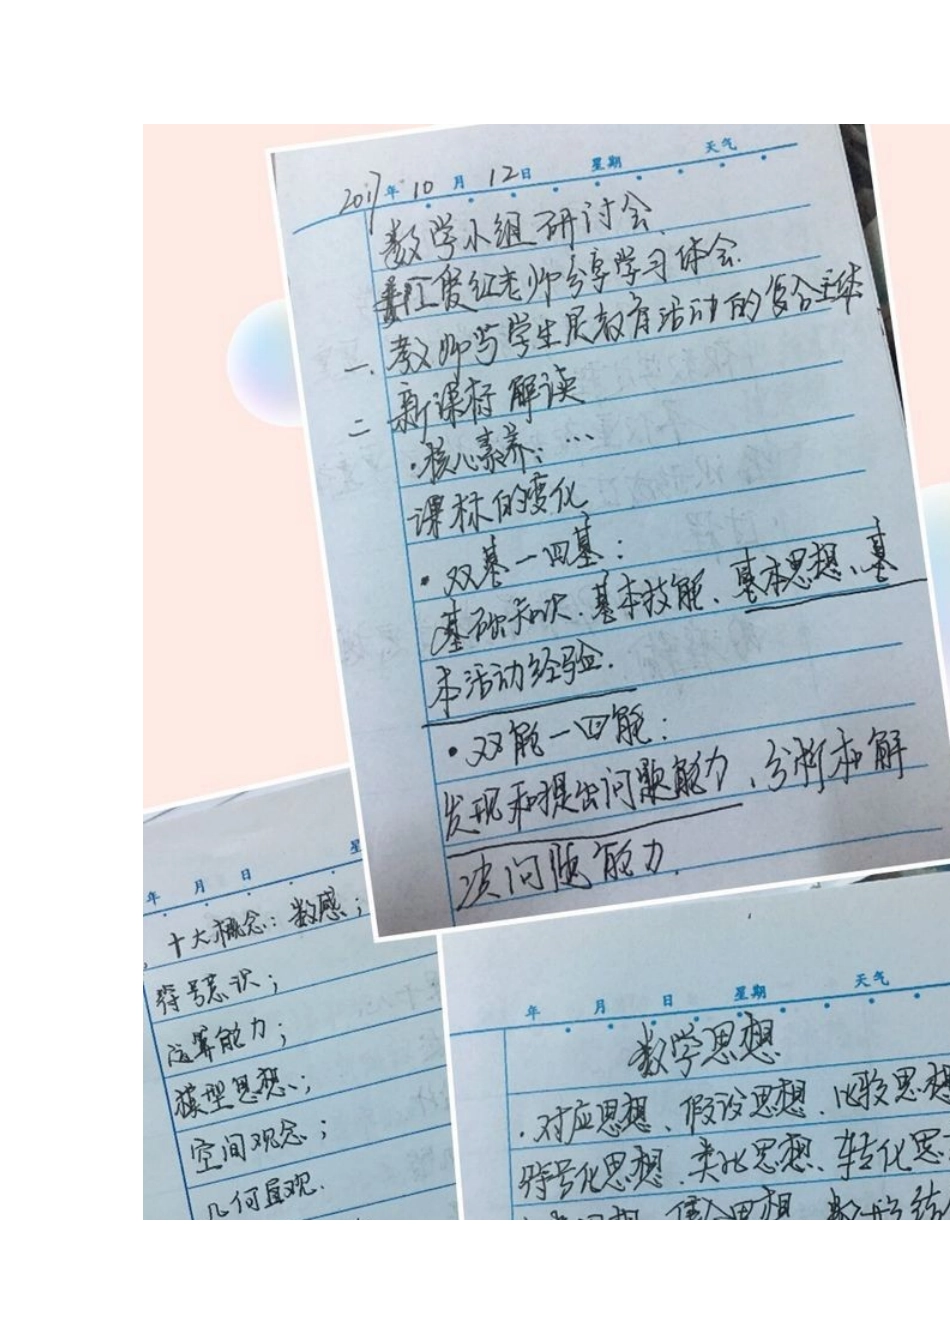 2017年 10月 12日 星期 天气
数学小组研讨会
江俊红老师分享学习体会.
一、教师与学生是教育活动的复合主体
二 新课标解读
·核心素养：…
课标的变化
·双基一四基：
基础知识、基本技能、基本思想、基
本活动经验.
·双能一四能：
发现和提出问题能力、分析和解
决问题能力.
年 月 日 星
十大概念：数感；
符号意识；
运算能力；
模型思想；
空间观念；
几何直观.
年 月 日 星期 天气
数学思想
·对应思想、假设思想、比较思想
符号化思想、类比思想、转化思
思想、数形结